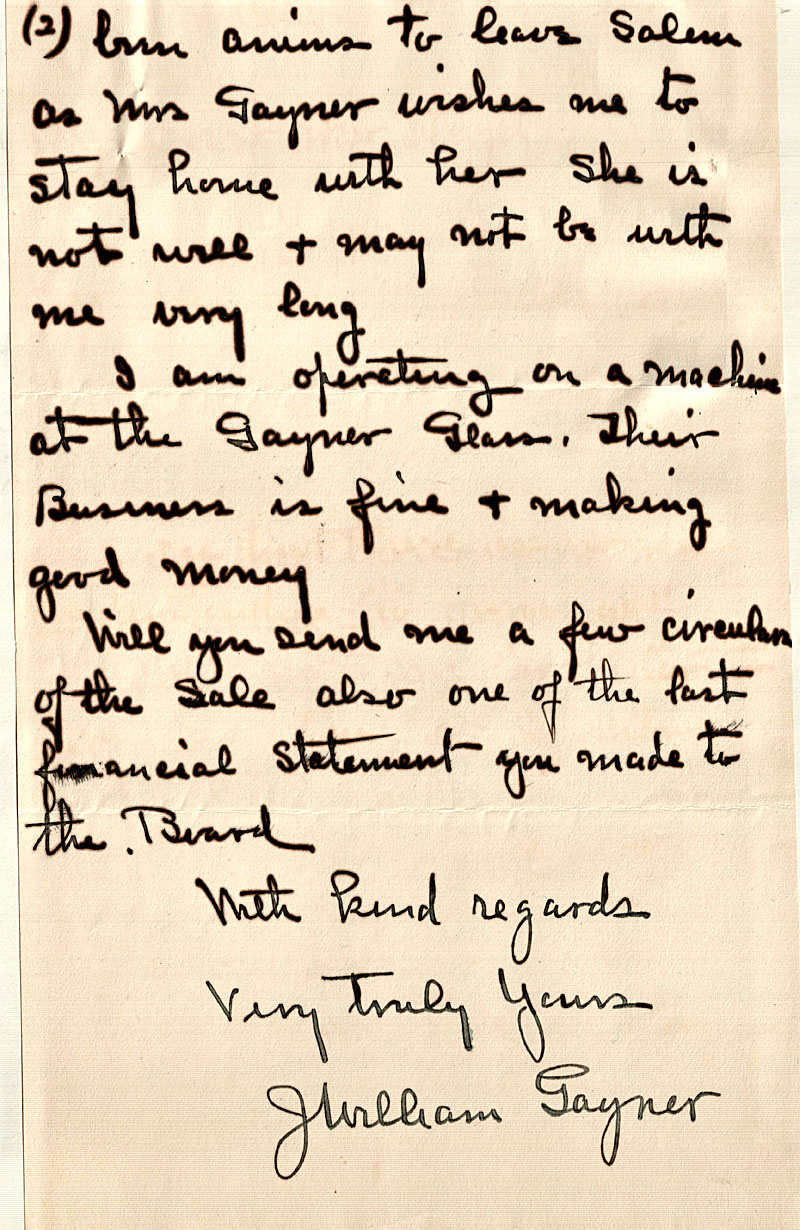 (2) been anxious to leave Salem
as Mrs Gayner wishes me to
stay home with her She is
not well + may not be with
me very long
I am operating on a machine
at the Gayner Glass. Their
Business is fine + making
good money
Will you send me a few circulars
of the Sale also one of the last
financial Statement you made to
the Board
With kind regards
Very Truly Yours
J William Gayner